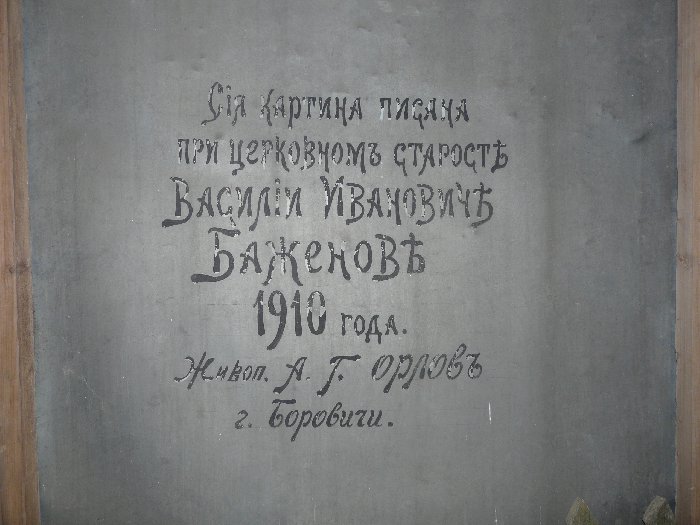 Сія картина писана
при церковномъ старостѣ
Василіи Ивановичѣ
Баженовѣ
1910 года.
Живоп. А. Г. Орловъ
г. Боровичи.